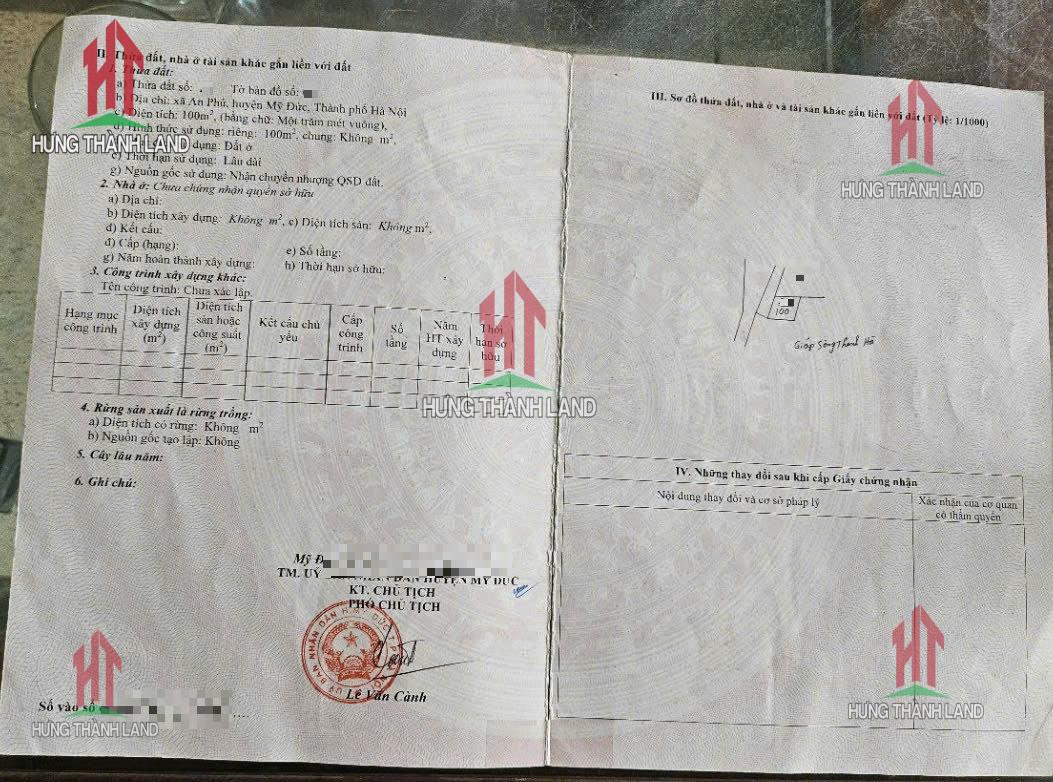 II. Thửa đất, nhà ở tài sản khác gắn liền với đất
1. Thửa đất:
a) Thửa đất số: Tờ bản đồ số:
b) Địa chỉ: xã An Phú, huyện Mỹ Đức, Thành phố Hà Nội
c) Diện tích: 100m², (bằng chữ: Một trăm mét vuông),
d) Hình thức sử dụng: riêng: 100m², chung: Không m²,
dụng: Đất ở
e) Thời hạn sử dụng: Lâu dài
g) Nguồn gốc sử dụng: Nhận chuyển nhượng QSD đất.
2. Nhà ở: Chưa chứng nhận quyền sở hữu
a) Địa chỉ:
b) Diện tích xây dựng: Không m², c) Diện tích sàn: Không m²,
d) Kết cấu:
đ) Cấp (hạng): e) Số tầng:
g) Năm hoàn thành xây dựng: h) Thời hạn sở hữu:
3. Công trình xây dựng khác:
Tên công trình: Chưa xác lập.
Hạng mục công trình
Diện tích xây dựng (m²)
Diện tích sàn hoặc công suất (m²)
Kết cấu chủ yếu
Cấp công trình
Số tầng
Năm HT xây dựng
Thời hạn sở hữu
4. Rừng sản xuất là rừng trồng:
a) Diện tích có rừng: Không m²
b) Nguồn gốc tạo lập: Không
5. Cây lâu năm:
6. Ghi chú:
Mỹ Đ
TM. UỶ BAN NHÂN DÂN HUYỆN MỸ ĐỨC
KT. CHỦ TỊCH
PHÓ CHỦ TỊCH
Lê Văn Cảnh
Số vào sổ
III. Sơ đồ thửa đất, nhà ở và tài sản khác gắn liền với đất (Tỷ lệ: 1/1000)
100
Giáp Sông Thanh Hà
IV. Những thay đổi sau khi cấp Giấy chứng nhận
Nội dung thay đổi và cơ sở pháp lý
Xác nhận của cơ quan có thẩm quyền
HƯNG THÀNH LAND
HƯNG THÀNH LAND
HƯNG THÀNH LAND
HƯNG THÀNH LAND
HƯNG THÀNH LAND